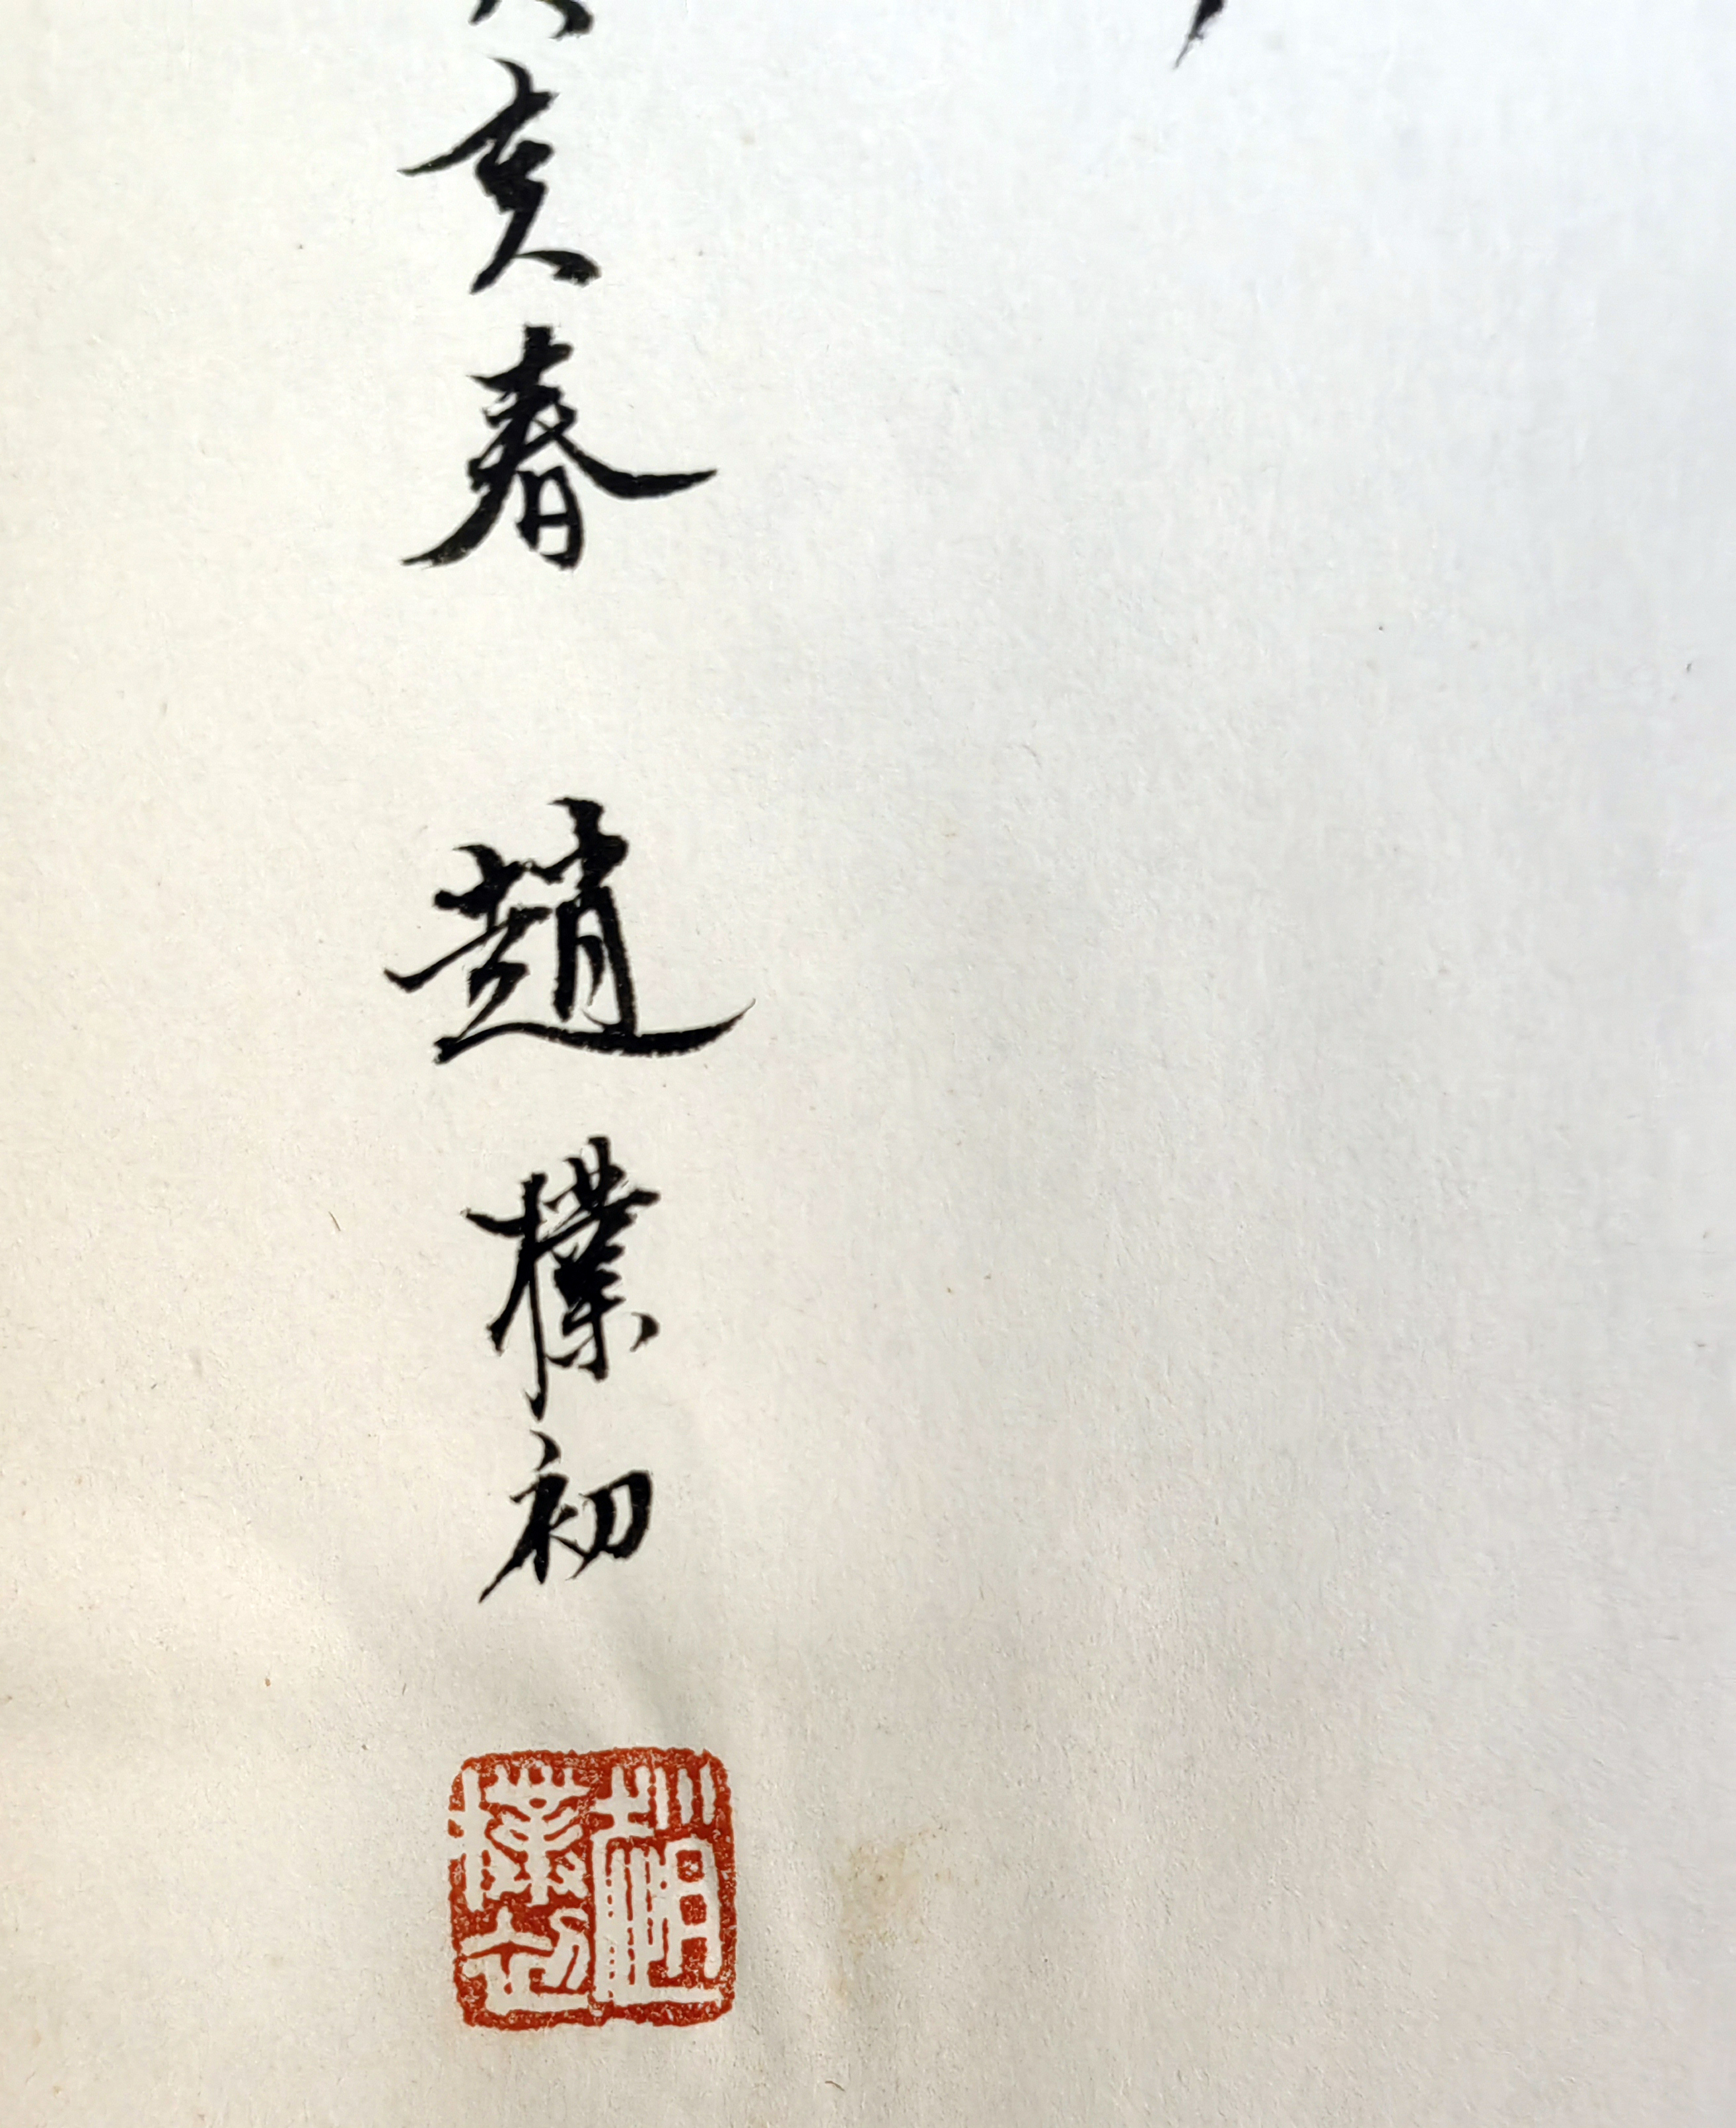 亥春 趙樸初
趙樸初